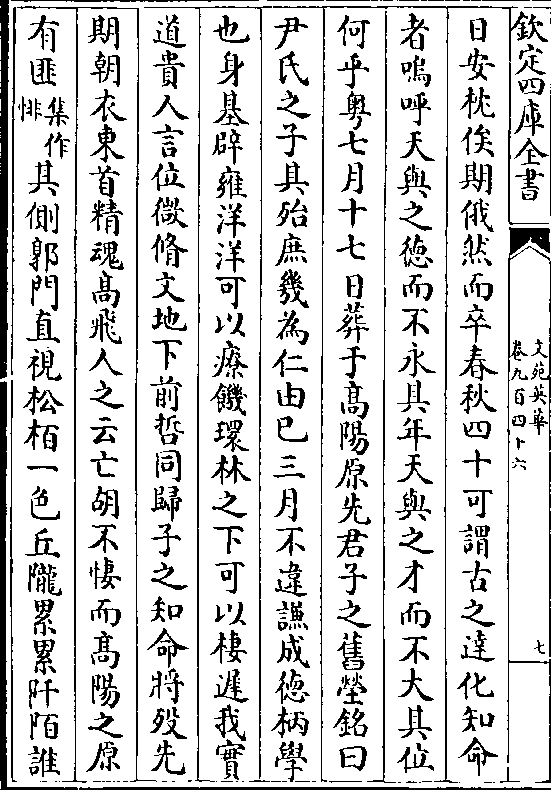 欽定四庫全書
文苑英華
卷九百四十六
七
日安枕俟期俄然而卒春秋四十可謂古之達化知命
者嗚呼天與之徳而不永具年天與之才而不大其位
何乎粤七月十七日葬于髙陽原先君子之舊塋銘曰
尹氏之子具殆庶幾為仁由已三月不違謙成徳柄學
也身基辟雍洋洋可以療饑環林之下可以棲遲我實
道貴人言位微脩文地下前哲同歸子之知命將殁先
期朝衣東首精魂髙飛人之云亡胡不悽而髙陽之原
有匪集作悱其側郭門直視松栢一色丘隴累累阡陌誰